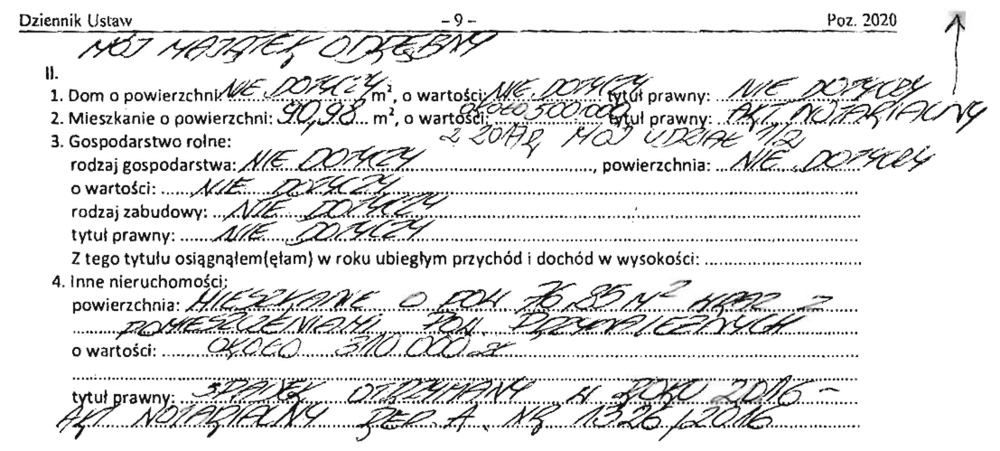 Dziennik Ustaw – 9 – Poz. 2020
MÓJ MAJĄTEK ODRĘBNY
II.
1. Dom o powierzchni: NIE DOTYCZY m², o wartości: NIE DOTYCZY tytuł prawny: NIE DOTYCZY
2. Mieszkanie o powierzchni: 90,98 m², o wartości: OKOŁO 500 000 tytuł prawny: AKT NOTARIALNY
Z 2017R MÓJ UDZIAŁ 1/2
3. Gospodarstwo rolne:
rodzaj gospodarstwa: NIE DOTYCZY, powierzchnia: NIE DOTYCZY
o wartości: NIE DOTYCZY
rodzaj zabudowy: NIE DOTYCZY
tytuł prawny: NIE DOTYCZY
Z tego tytułu osiągnąłem(ęłam) w roku ubiegłym przychód i dochód w wysokości:
4. Inne nieruchomości:
powierzchnia: MIESZKANIE O POW 76,85 M² WRAZ Z
POMIESZCZENIAMI POW. PRZYNALEŻNYCH
o wartości: OKOŁO 310 000 zł
tytuł prawny: SPADEK OTRZYMANY W ROKU 2016 –
AKT NOTARIALNY REP. A. NR 1326/2016